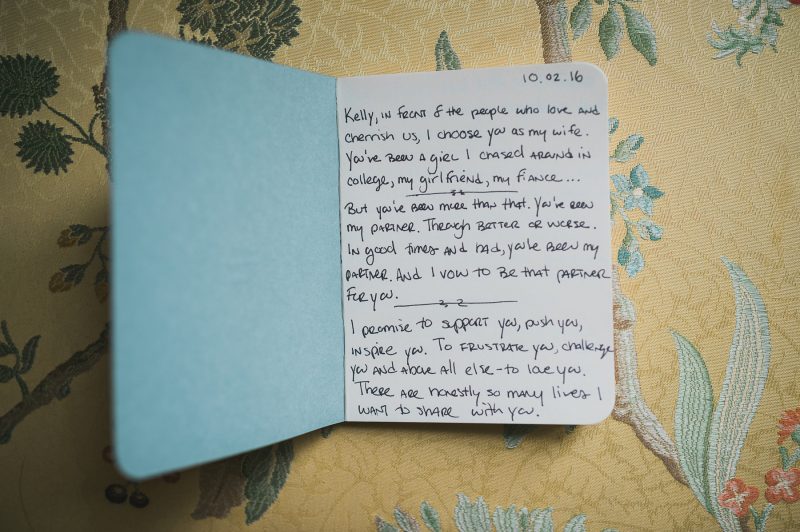 10.02.16
Kelly, in front of the people who love and
cherrish us, I choose you as my wife.
You've been a girl I chased around in
college, my girlfriend, my fiance...
But you've been more than that. You've been
my partner. Through better or worse.
In good times and bad, you've been my
partner. And I vow to be that partner
for you.
I promise to support you, push you,
inspire you. To frustrate you, challenge
you and above all else - to love you.
There are honestly so many lives I
want to share with you.